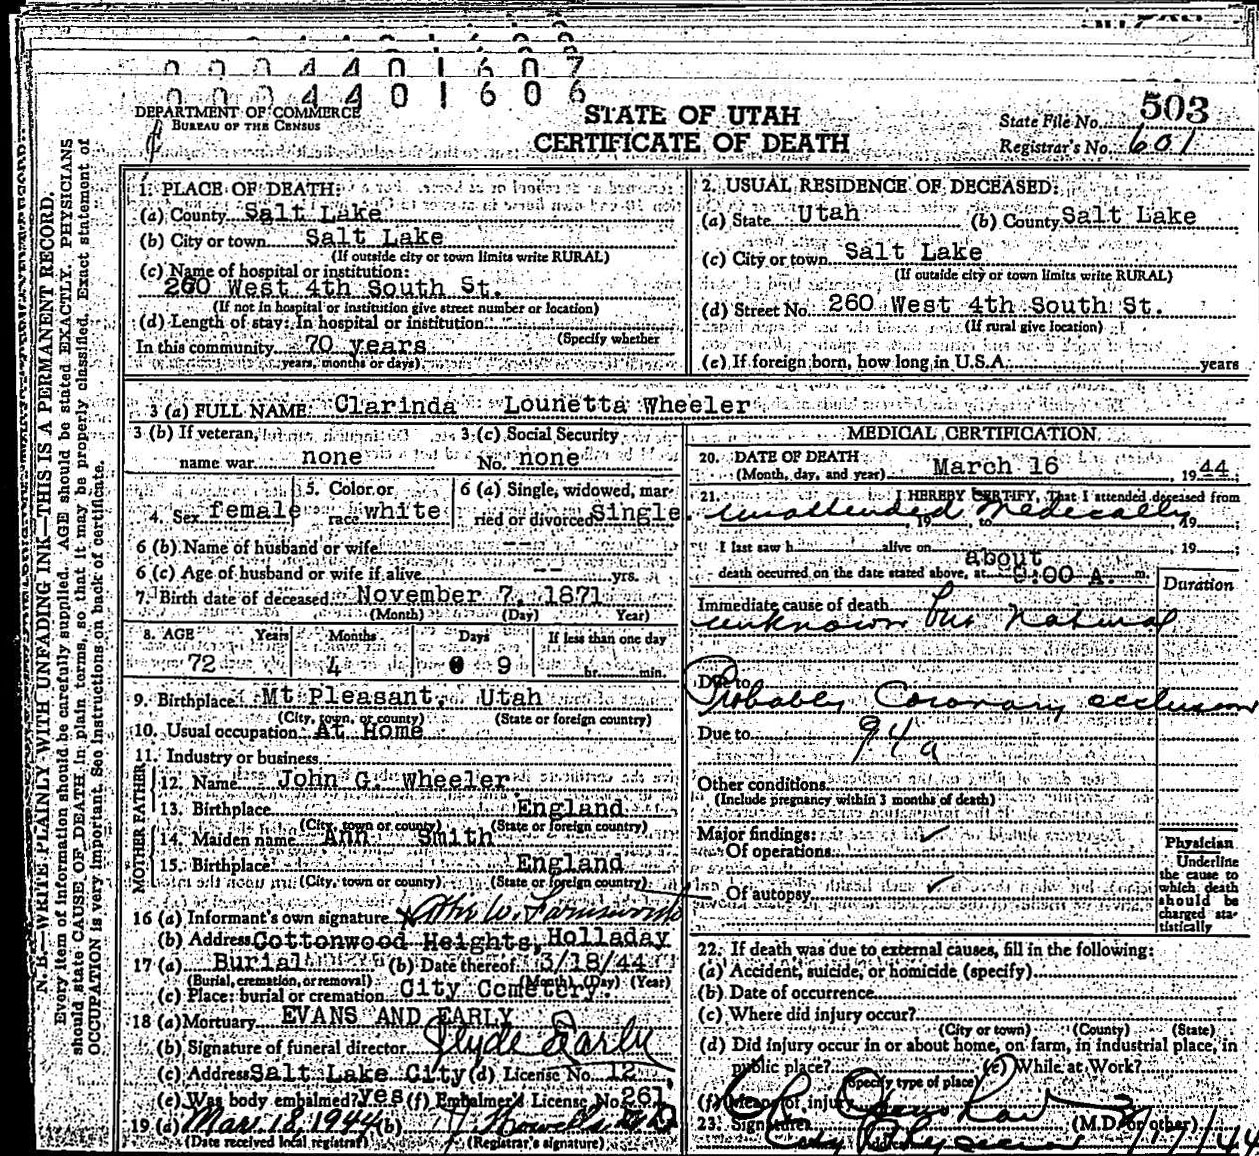 0 0 0 4 4 0 1 6 0 7
0 0 0 4 4 0 1 6 0 6
DEPARTMENT OF COMMERCE
BUREAU OF THE CENSUS
STATE OF UTAH
CERTIFICATE OF DEATH
State File No. 503
Registrar's No. 601
N. B.—WRITE PLAINLY WITH UNFADING INK—THIS IS A PERMANENT RECORD.
Every item of information should be carefully supplied. AGE should be stated EXACTLY. PHYSICIANS
should state CAUSE OF DEATH in plain terms, so that it may be properly classified. Exact statement of
OCCUPATION is very important. See instructions on back of certificate.
1. PLACE OF DEATH:
(a) County Salt Lake
(b) City or town Salt Lake
(If outside city or town limits write RURAL)
(c) Name of hospital or institution:
260 West 4th South St.
(If not in hospital or institution give street number or location)
(d) Length of stay: In hospital or institution
(Specify whether
In this community 70 years
years, months or days)
2. USUAL RESIDENCE OF DECEASED:
(a) State Utah (b) County Salt Lake
(c) City or town Salt Lake
(If outside city or town limits write RURAL)
(d) Street No. 260 West 4th South St.
(If rural give location)
(e) If foreign born, how long in U.S.A. years
3 (a) FULL NAME Clarinda Lounetta Wheeler
3 (b) If veteran, 3 (c) Social Security
name war none No. none
4. Sex female 5. Color or race white 6 (a) Single, widowed, married or divorced Single
6 (b) Name of husband or wife --
6 (c) Age of husband or wife if alive -- yrs.
7. Birth date of deceased November 7, 1871
(Month) (Day) Year)
8. AGE Years Months Days If less than one day
72 4 9 hr. min.
9. Birthplace Mt Pleasant, Utah
(City, town, or county) (State or foreign country)
10. Usual occupation At Home
11. Industry or business
FATHER
12. Name John G. Wheeler
13. Birthplace England
(City, town or county) (State or foreign country)
MOTHER
14. Maiden name Ann Smith
15. Birthplace England
(City, town or county) (State or foreign country)
16 (a) Informant's own signature W. Farnsworth
(b) Address Cottonwood Heights, Holladay
17 (a) Burial (b) Date thereof 3/18/44
(Burial, cremation, or removal) (Month) (Day) (Year)
(c) Place: burial or cremation City Cemetery.
18 (a) Mortuary EVANS AND EARLY
(b) Signature of funeral director Clyde Early
(c) Address Salt Lake City (d) License No. 12
(e) Was body embalmed? yes (f) Embalmer's License No. 261
19 (a) Mar. 18, 1944 (b)
(Date received local registrar) (Registrar's signature)
MEDICAL CERTIFICATION
20. DATE OF DEATH
(Month, day, and year) March 16, 1944.
21. I HEREBY CERTIFY, That I attended deceased from
unattended Medically, 19 , to , 19 ;
I last saw h alive on , 19 ;
about
death occurred on the date stated above, at 9:00 A. m.
Duration
Immediate cause of death
unknown but Natural
Due to
Probably Coronary occlusion
Due to 94a
Other conditions
(Include pregnancy within 3 months of death)
Major findings:
Of operations ✓
Of autopsy ✓
Physician
Underline
the cause to
which death
should be
charged sta-
tistically
22. If death was due to external causes, fill in the following:
(a) Accident, suicide, or homicide (specify)
(b) Date of occurrence
(c) Where did injury occur?
(City or town) (County) (State)
(d) Did injury occur in or about home, on farm, in industrial place, in
public place? (e) While at Work?
(Specify type of place)
(f) Means of injury
23. Signature (M.D. or other)
Address City Physician 3/17/44